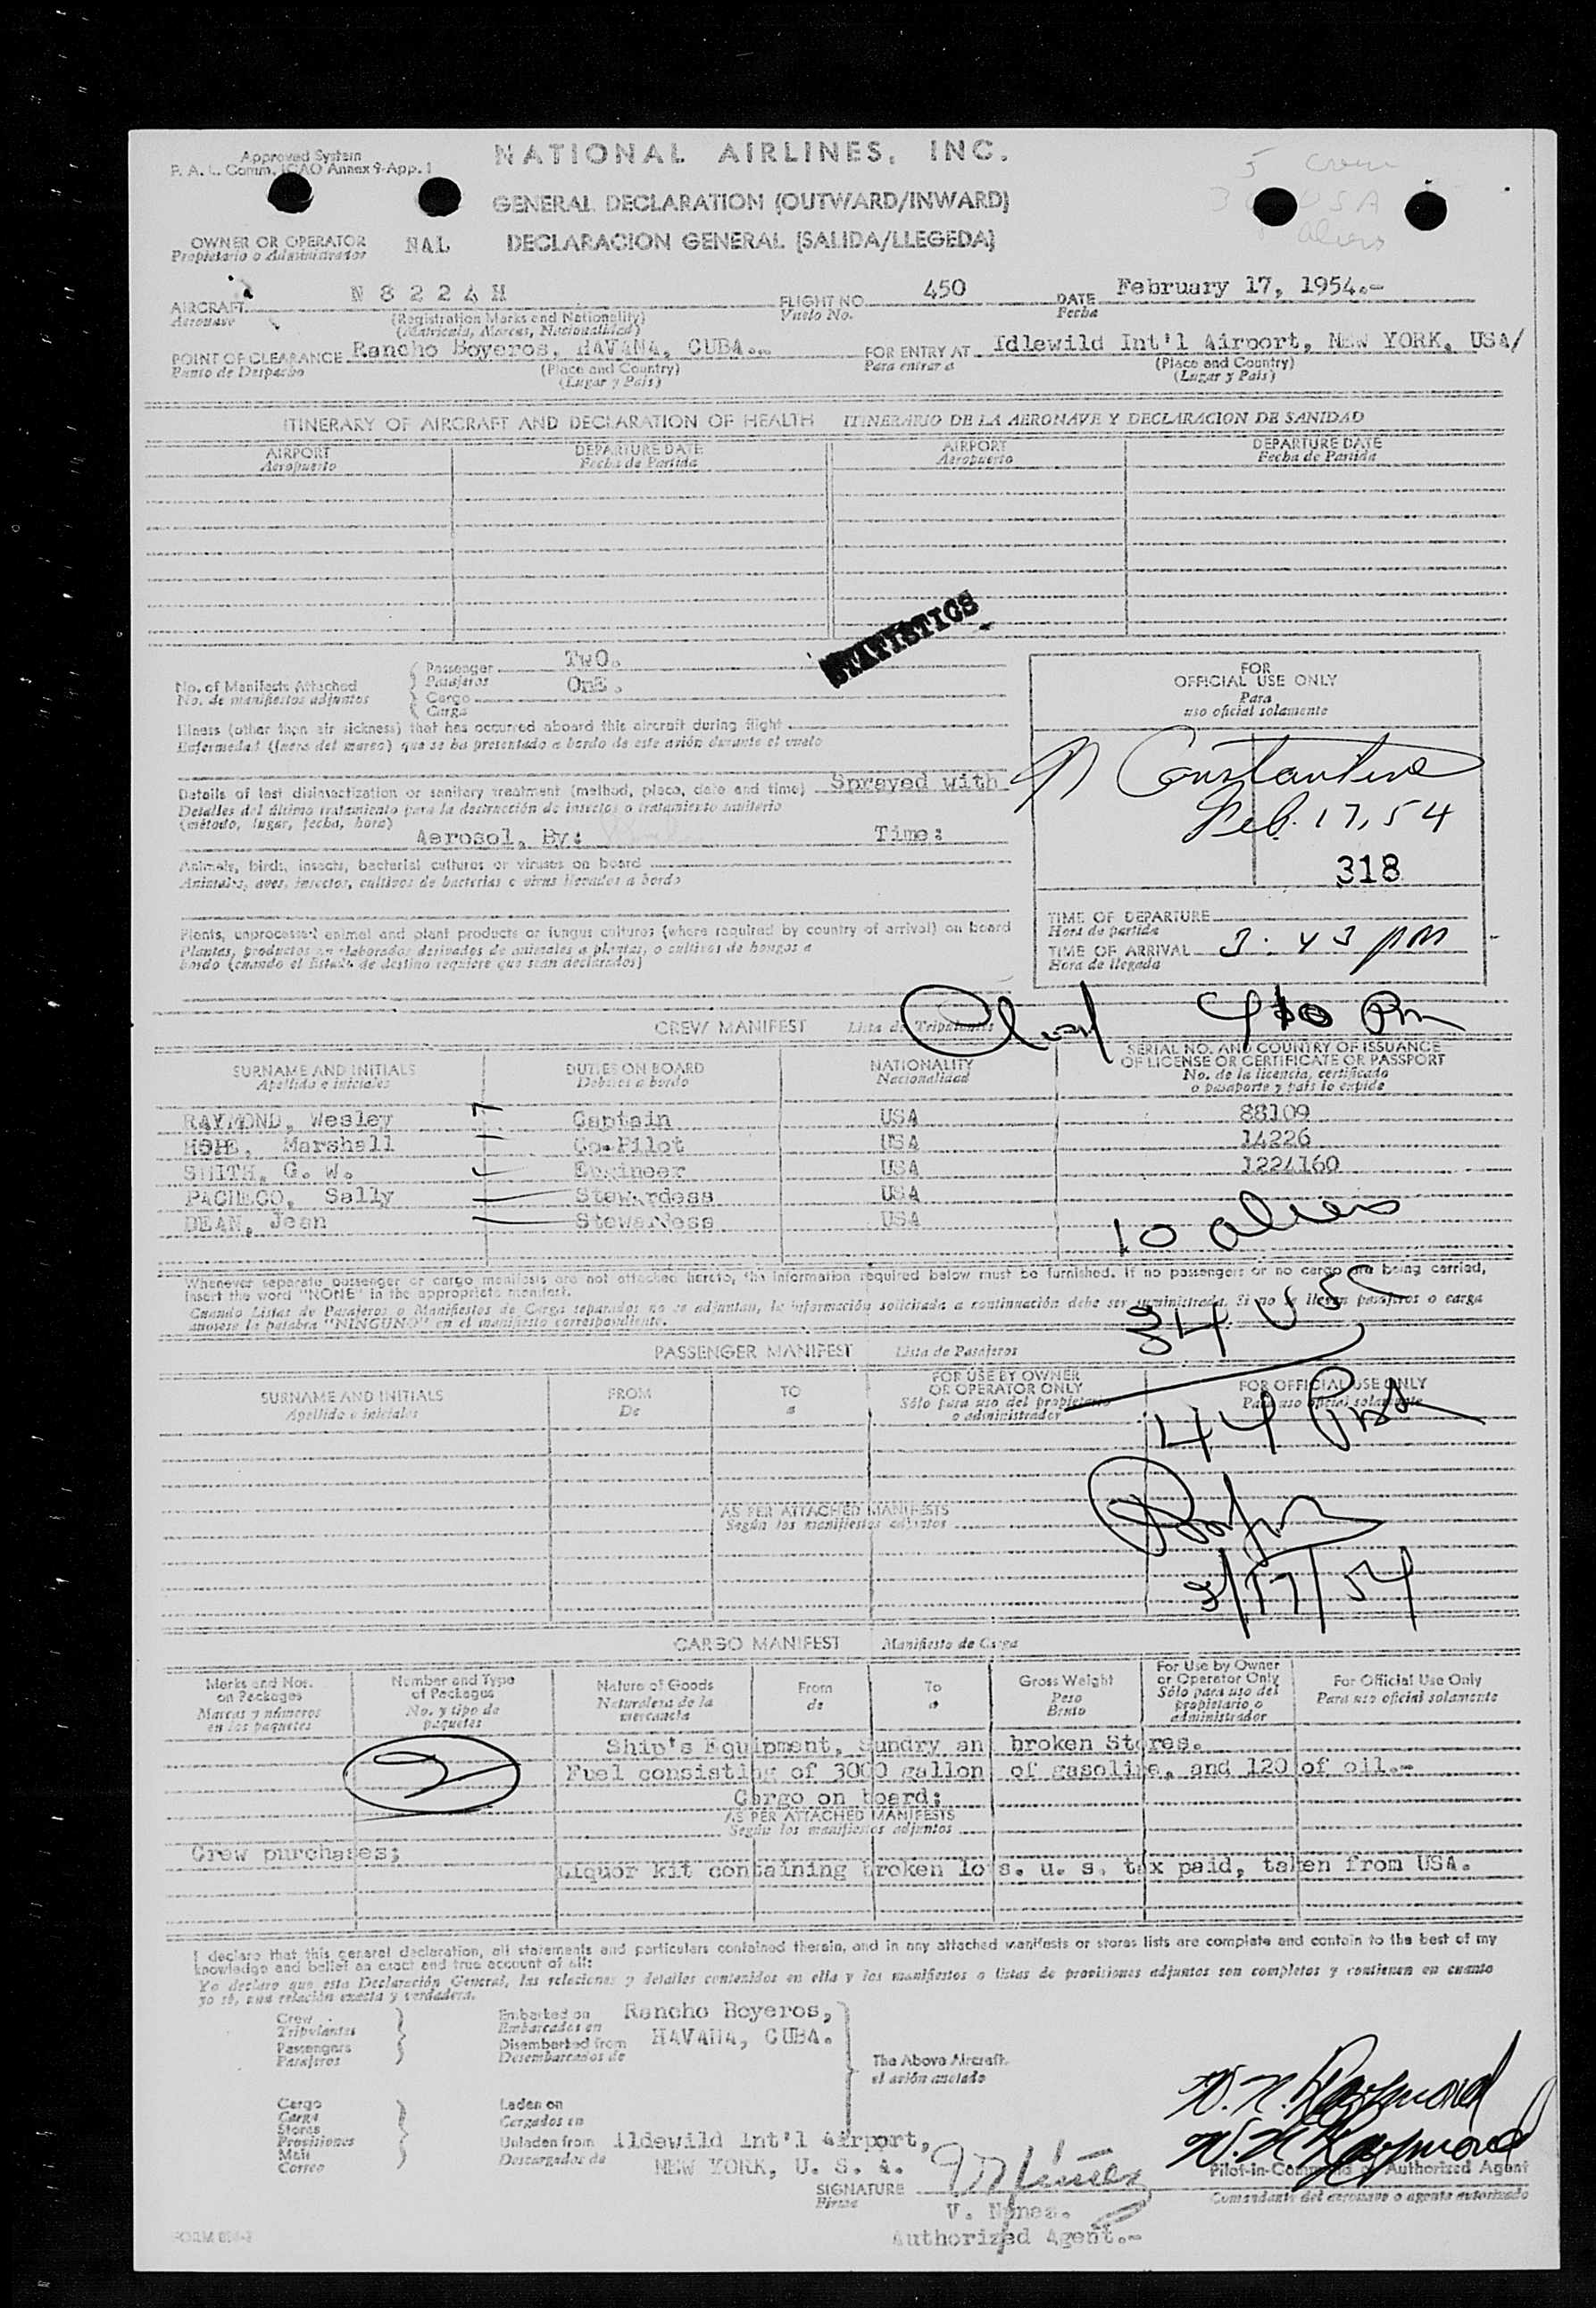 Approved System
F. A. L. Comm. ICAO Annex 9-App. 1
NATIONAL AIRLINES, INC.
5 Crew
USA
aliens
GENERAL DECLARATION (OUTWARD/INWARD)
OWNER OR OPERATOR NAL
Propietario o Administrador
DECLARACION GENERAL (SALIDA/LLEGEDA)
AIRCRAFT N 8 2 2 4 H FLIGHT NO. 450 DATE February 17, 1954.-
Aeronave (Registration Marks and Nationality) Vuelo No. Fecha
(Matricula, Marcas, Nacionalidad)
POINT OF CLEARANCE Rancho Boyeros, HAVANA, CUBA... FOR ENTRY AT Idlewild Int'l Airport, NEW YORK, USA/
Punto de Despacho (Place and Country) Para entrar a (Place and Country)
(Lugar y Pais) (Lugar y Pais)
ITINERARY OF AIRCRAFT AND DECLARATION OF HEALTH ITINERARIO DE LA AERONAVE Y DECLARACION DE SANIDAD
AIRPORT DEPARTURE DATE AIRPORT DEPARTURE DATE
Aeropuerto Fecha de Partida Aeropuerto Fecha de Partida
STATISTICS
No. of Manifests Attached
No. de manifiestos adjuntos
Passenger TwO.
Pasajeros
Cargo OnE.
Carga
FOR
OFFICIAL USE ONLY
Para
uso oficial solamente
Illness (other than air sickness) that has occurred aboard this aircraft during flight
Enfermedad (fuera del mareo) que se ha presentado a bordo de este avión durante el vuelo
Details of last disinsectization or sanitary treatment (method, place, date and time) Sprayed with
Detalles del último tratamiento para la destrucción de insectos o tratamiento sanitario
(método, lugar, fecha, hora)
Aerosol, By: Time:
Constantine
Feb. 17, 54
318
Animals, birds, insects, bacterial cultures or viruses on board
Animales, aves, insectos, cultivos de bacterias o virus llevados a bordo
Plants, unprocessed animal and plant products or fungus cultures (where required by country of arrival) on board
Plantas, productos no elaborados derivados de animales o plantas, o cultivos de hongos a
bordo (cuando el Estado de destino requiere que sean declarados)
TIME OF DEPARTURE
Hora de partida
TIME OF ARRIVAL 3:43 PM
Hora de llegada
CREW MANIFEST Lista de Tripulantes
SURNAME AND INITIALS DUTIES ON BOARD NATIONALITY SERIAL NO. AND COUNTRY OF ISSUANCE
Apellido e iniciales Deberes a bordo Nacionalidad OF LICENSE OR CERTIFICATE OR PASSPORT
No. de la licencia, certificado
o pasaporte y país lo expide
RAYMOND, Wesley Captain USA 88109
HOPE, Marshall Co-Pilot USA 14226
SMITH, G. W. Engineer USA 1224160
PACHECO, Sally Stewardess USA
DEAN, Jean Stewardess USA
10 aliens
Whenever separate passenger or cargo manifests are not attached hereto, the information required below must be furnished. If no passengers or no cargo are being carried,
insert the word "NONE" in the appropriate manifest.
Cuando Listas de Pasajeros o Manifiestos de Carga separados no se adjuntan, la información solicitada a continuación debe ser suministrada. Si no se llevan pasajeros o carga
anótese la palabra "NINGUNO" en el manifiesto correspondiente.
34 USC
PASSENGER MANIFEST Lista de Pasajeros
SURNAME AND INITIALS FROM TO FOR USE BY OWNER FOR OFFICIAL USE ONLY
Apellido e iniciales De a OR OPERATOR ONLY Para uso oficial solamente
Sólo para uso del propietario
o administrador
44
AS PER ATTACHED MANIFESTS
Según los manifiestos adjuntos
2/17/54
CARGO MANIFEST Manifiesto de Carga
Marks and Nos. on Packages
Marcas y números en los paquetes
Number and Type of Packages
No. y tipo de paquetes
Nature of Goods
Naturaleza de la mercancía
From
de
To
a
Gross Weight
Peso Bruto
For Use by Owner or Operator Only
Sólo para uso del propietario o administrador
For Official Use Only
Para uso oficial solamente
Ship's Equipment, Sundry an broken Stores.
2
Fuel consisting of 3000 gallon of gasoline, and 120 of oil.-
Cargo on board:
AS PER ATTACHED MANIFESTS
Según los manifiestos adjuntos
Crew purchases;
Liquor kit containing broken lots. u. s. tax paid, taken from USA.
I declare that this general declaration, all statements and particulars contained therein, and in any attached manifests or stores lists are complete and contain to the best of my
knowledge and belief an exact and true account of all:
Yo declaro que esta Declaración General, las relaciones y detalles contenidos en ella y los manifiestos o listas de provisiones adjuntos son completos y contienen en cuanto
yo sé, una relación exacta y verdadera.
Crew
Tripulantes
Passengers
Pasajeros
Embarked on Rancho Boyeros,
Embarcados en
Disembarked from HAVANA, CUBA.
Desembarcados de
The Above Aircraft
el avión anotado
Cargo
Carga
Stores
Provisiones
Mail
Correo
Laden on
Cargados en
Unladen from Ildewild Int'l Airport,
Descargados de NEW YORK, U. S. A.
W. N. Raymond
W. N. Raymond
Pilot-in-Command or Authorized Agent
Comandante del aeronave o agente autorizado
SIGNATURE V Núñez
Firma
V. Nunez.
Authorized Agent.-